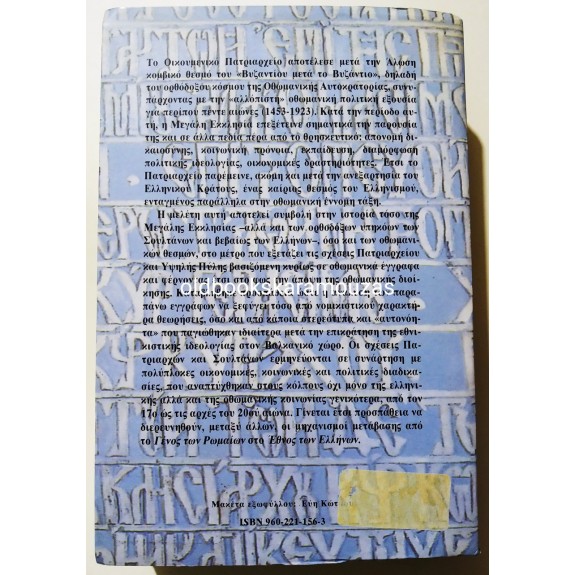 Το Οικουμενικό Πατριαρχείο αποτέλεσε μετά την Άλωση
κομβικό θεσμό του «Βυζαντίου μετά το Βυζάντιο», δηλαδή
του ορθόδοξου κόσμου της Οθωμανικής Αυτοκρατορίας, συνυ-
πάρχοντας με την «αλλόπιστη» οθωμανική πολιτική εξουσία
για περίπου πέντε αιώνες (1453-1923). Κατά την περίοδο αυ-
τή, η Μεγάλη Εκκλησία επεξέτεινε σημαντικά την παρουσία
της και σε άλλα πεδία πέρα από το θρησκευτικό: απονομή δι-
καιοσύνης, κοινωνική πρόνοια, εκπαίδευση, διαμόρφωση
πολιτικής ιδεολογίας, οικονομικές δραστηριότητες. Έτσι το
Πατριαρχείο παρέμεινε, ακόμη και μετά την ανεξαρτησία του
Ελληνικού Κράτους, ένας καίριος θεσμός του Ελληνισμού,
ενταγμένος παράλληλα στην οθωμανική έννομη τάξη.
Η μελέτη αυτή αποτελεί συμβολή στην ιστορία τόσο της
Μεγάλης Εκκλησίας –αλλά και των ορθοδόξων υπηκόων των
Σουλτάνων και βεβαίως των Ελλήνων–, όσο και των οθωμανι-
κών θεσμών, στο μέτρο που εξετάζει τις σχέσεις Πατριαρχείου
και Υψηλής Πύλης βασιζόμενη κυρίως σε οθωμανικά έγγραφα
και φέρνοντας έτσι στο φως την άποψη της οθωμανικής διοί-
κησης. παρα-
πάνω εγγράφων να ξεφύγει τόσο από νομικιστικού χαρακτή-
ρα θεωρήσεις, όσο και από κάποια στερεότυπα και «αυτονό-
ητα» που παγιώθηκαν ιδιαίτερα μετά την επικράτηση της εθνι-
κιστικής ιδεολογίας στον Βαλκανικό χώρο. Οι σχέσεις Πα-
τριαρχών και Σουλτάνων ερμηνεύονται σε συνάρτηση με
πολύπλοκες οικονομικές, κοινωνικές και πολιτικές διαδικα-
σίες, που αναπτύχθηκαν στους κόλπους όχι μόνο της ελληνι-
κής αλλά και της οθωμανικής κοινωνίας γενικότερα, από τον
17ο ως τις αρχές του 20ού αιώνα. Γίνεται έτσι προσπάθεια να
διερευνηθούν, μεταξύ άλλων, οι μηχανισμοί μετάβασης από
το Γένος των Ρωμαίων στο Έθνος των Ελλήνων.
oldbookskarampuzas
Μακέτα εξωφύλλου: Εύη
ISBN 960-221-156-3